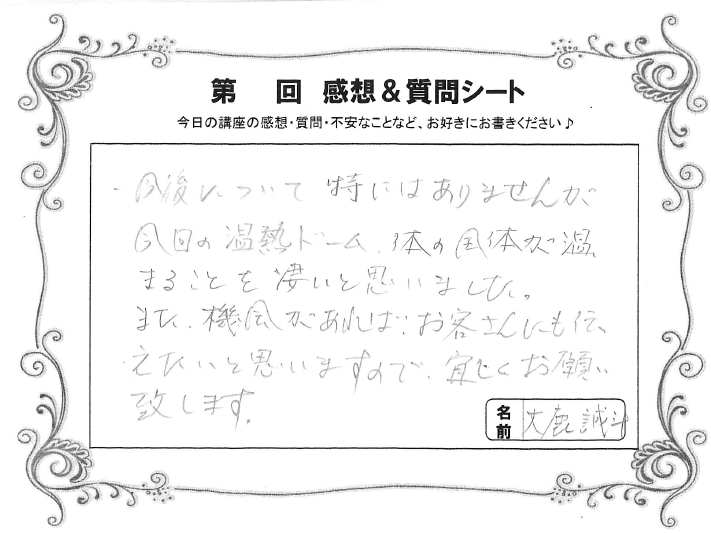 第 回 感想&質問シート
今日の講座の感想・質問・不安なことなど、お好きにお書きください♪
・今後について 特にはありませんが
今回の温熱ドーム、体の 体が温
まることを凄いと思いました。
また、機 があれば、お客さんにも伝
えたいと思いますので、宜しくお願い
致します。
名前 大鹿 誠斗